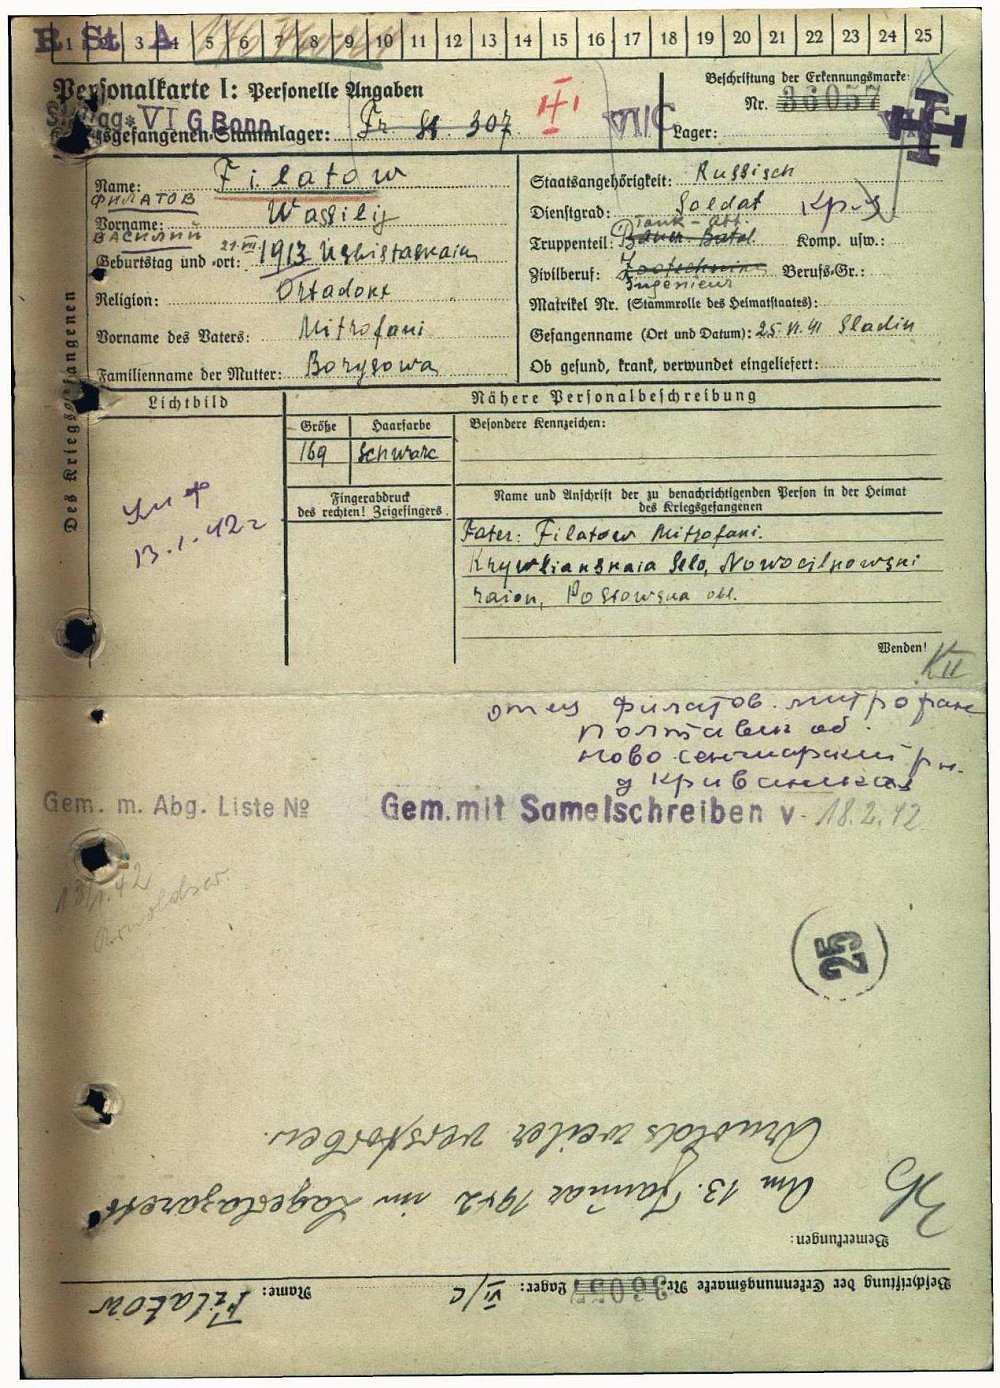 1 2 3 4 5 6 7 8 9 10 11 12 13 14 15 16 17 18 19 20 21 22 23 24 25
Personalkarte I: Personelle Angaben
Beschriftung der Erkennungsmarke:
Nr. 36057
VI G Bonn
Kriegsgefangenen-Stammlager: Fr St 307 VI/C
Lager:
Des Kriegsgefangenen
Name: Filatow
ФИЛАТОВ
Vorname: Wassilij
ВАСИЛИЙ
Geburtstag und -ort: 21.VII 1913
Religion: Ortadox
Vorname des Vaters: Mitrofani
Familienname der Mutter: Borysowa
Staatsangehörigkeit: Russisch
Dienstgrad: Soldat
Truppenteil: Komp. usw.:
Zivilberuf: Berufs-Gr.:
Ingenieur
Matrikel Nr. (Stammrolle des Heimatstaates):
Gefangenname (Ort und Datum): 25.VI.41 Sladin
Ob gesund, krank, verwundet eingeliefert:
Lichtbild
Nähere Personalbeschreibung
Größe Haarfarbe Besondere Kennzeichen:
169 Schwarz
Fingerabdruck
des rechten! Zeigefingers
Name und Anschrift der zu benachrichtigenden Person in der Heimat
des Kriegsgefangenen
13.1.42г
Fater: Filatow Mitrofani.
Krywlianskaia Selo, Nowocilnowski
raion, Postowska obl.
Wenden!
отец Филатов митрофан
полтавен об.
ново сенжарский рн.
д криваники
Gem. m. Abg. Liste №
Gem. mit Samelschreiben v. 18.2.42
13/1.42
Arnoldsw.
25
Beschriftung der Erkennungsmarke Nr. 36057 Lager: VI/C Name: Filatow
Bemerkungen:
Am 13. Januar 1942 im Lagerlazarett
Arnoldsweiler verstorben.